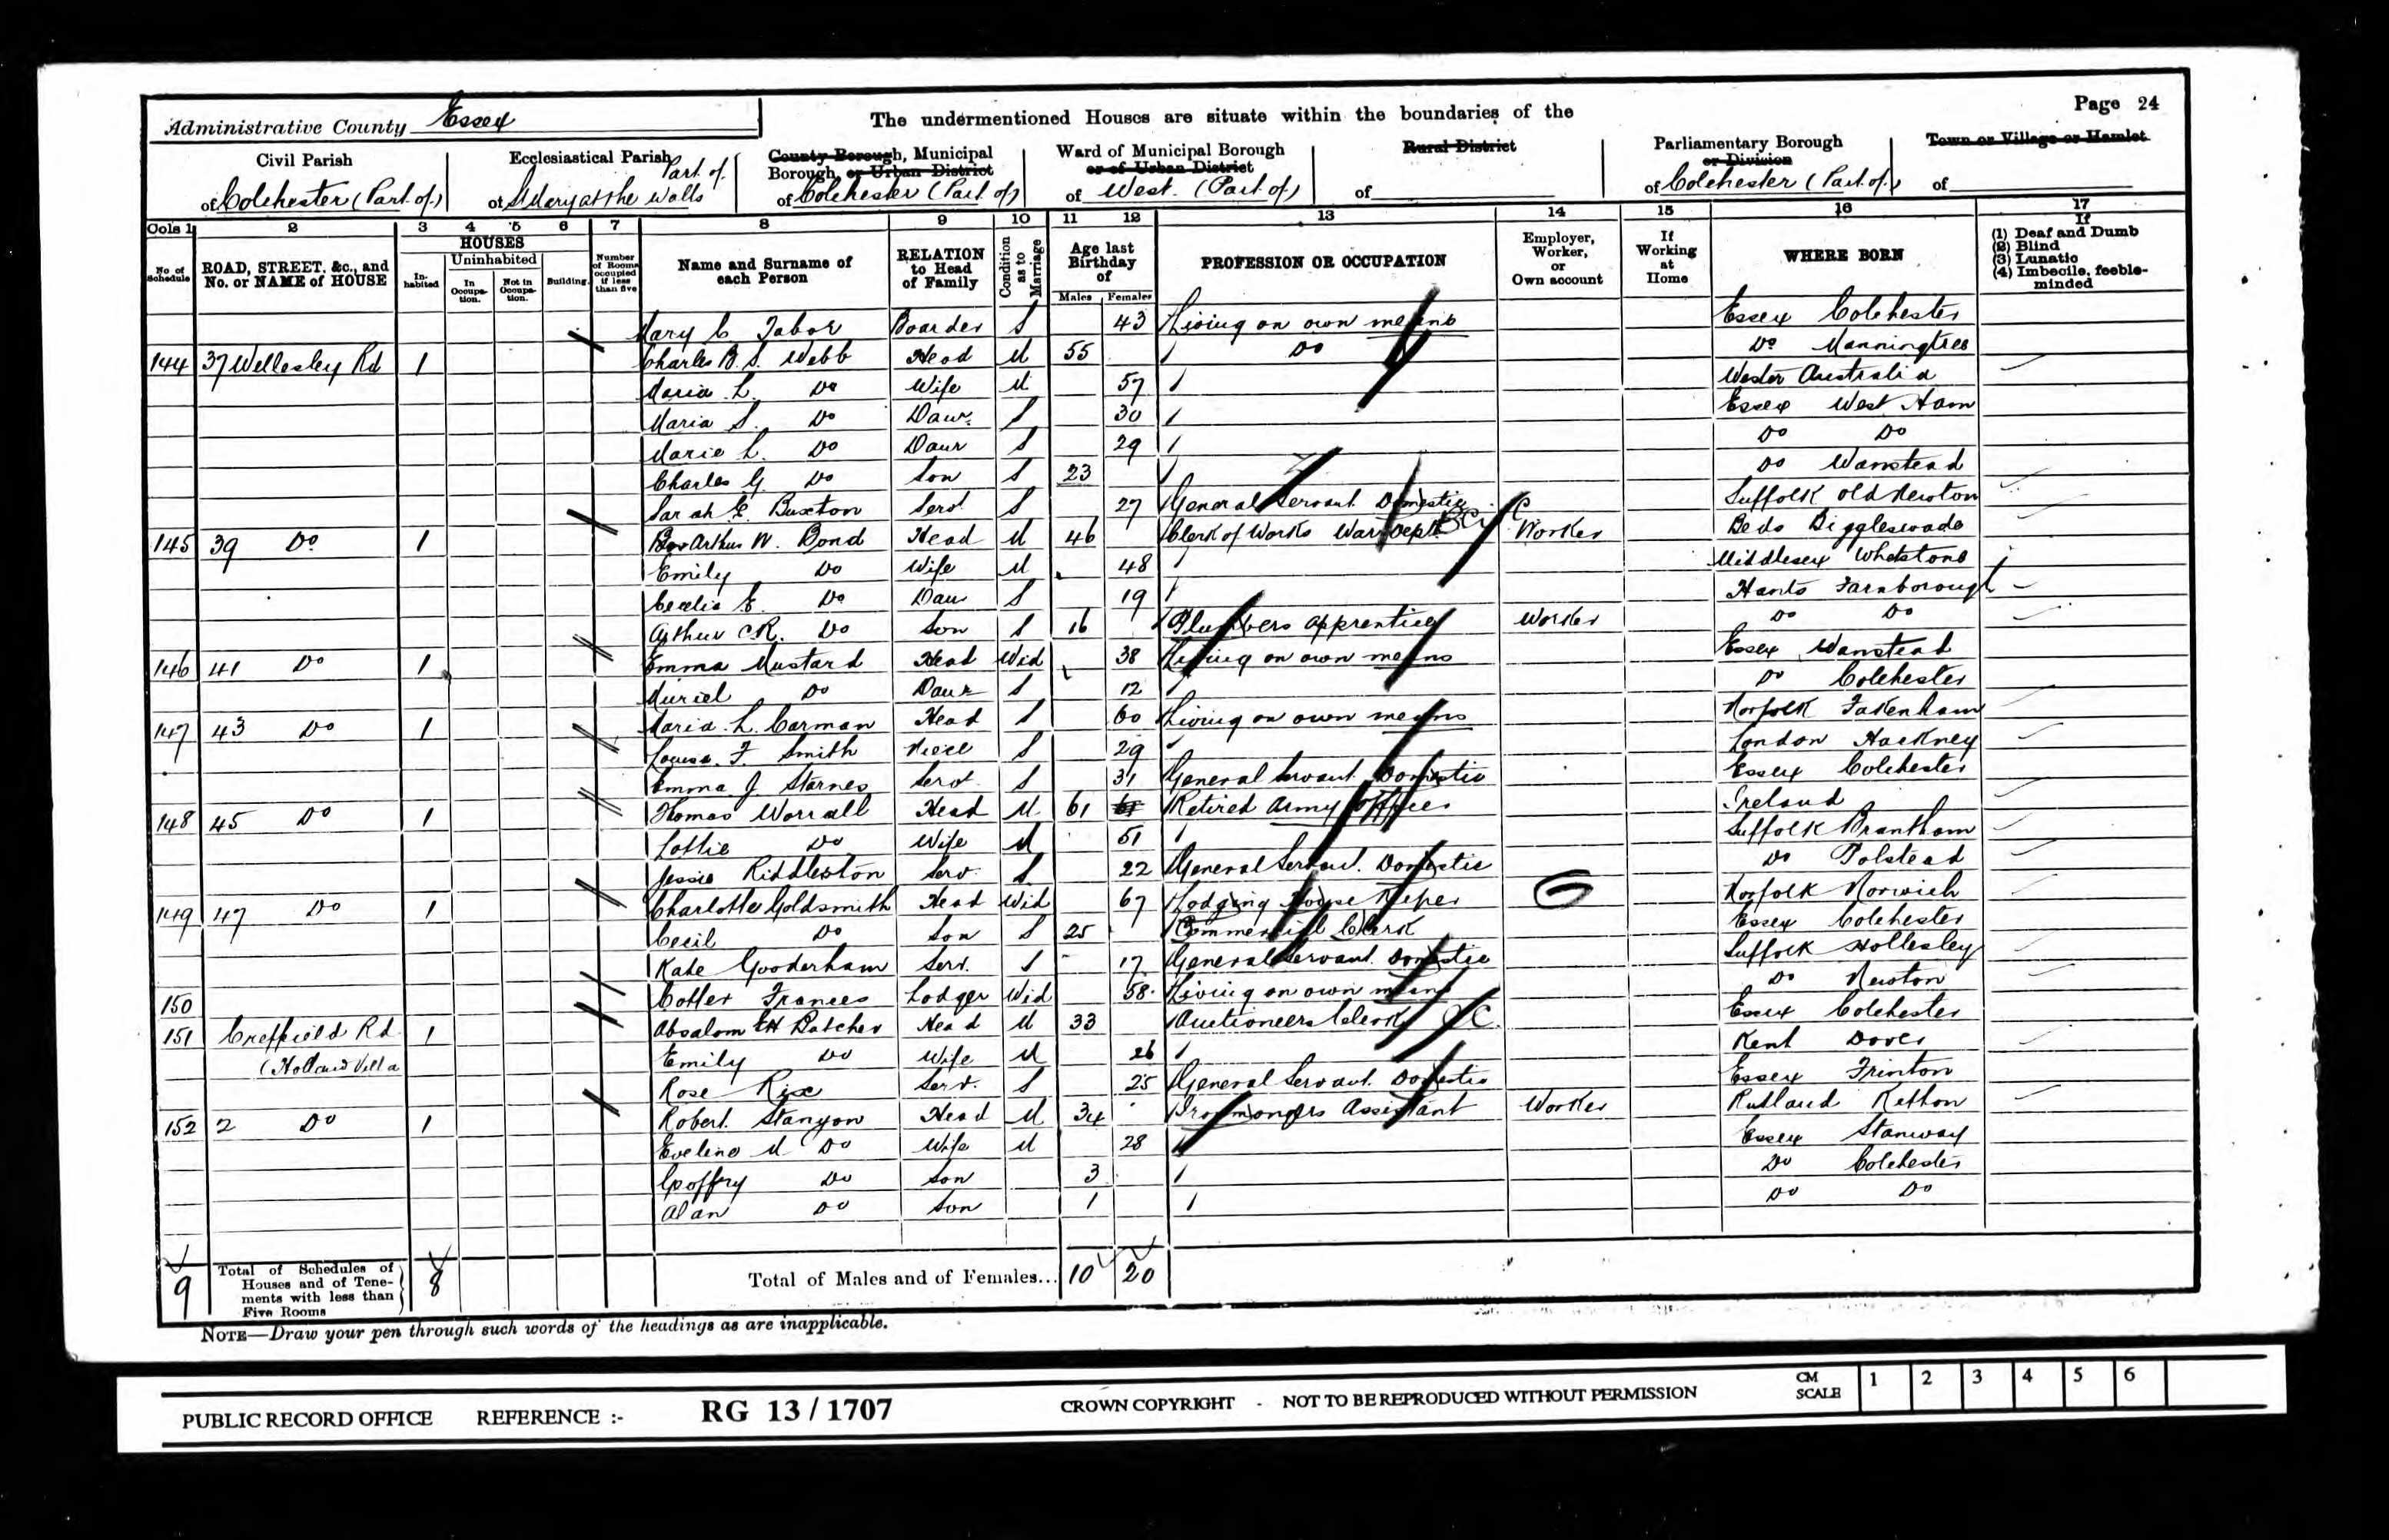 Page 24
Administrative County Essex
The undermentioned Houses are situate within the boundaries of the
Civil Parish
of Colchester (Part of)
Ecclesiastical Parish
Part of
of St Mary at the Walls
County Borough, Municipal
Borough, or Urban District
of Colchester (Part of)
Ward of Municipal Borough
or of Urban District
of West. (Part of)
Rural District
of
Parliamentary Borough
or Division
of Colchester (Part of)
Town or Village or Hamlet
of
Cols 1 2 3 4 5 6 7 8 9 10 11 12 13 14 15 16 17
No. of Schedule
ROAD, STREET, &c., and No. or NAME of HOUSE
HOUSES
In-habited
Uninhabited
In Occupa-tion.
Not in Occupa-tion.
Building.
Number of Rooms occupied if less than five
Name and Surname of each Person
RELATION to Head of Family
Condition as to Marriage
Age last Birthday of
Males Females
PROFESSION OR OCCUPATION
Employer, Worker, or Own account
If Working at Home
WHERE BORN
If
(1) Deaf and Dumb
(2) Blind
(3) Lunatic
(4) Imbecile, feeble-minded
Mary C Tabor Boarder S 43 Living on own means Essex Colchester
144 37 Wellesley Rd 1 Charles B. S. Webb Head M 55 Do Do Manningtree
Maria L. Do Wife M 57 Western Australia
Maria S. Do Daur. S 30 Essex West Ham
Marie L. Do Daur S 29 Do Do
Charles G. Do Son S 23 Do Wanstead
Sarah E. Buxton Servt S 27 General Servant Domestic Suffolk Old Newton
145 39 Do 1 Arthur W. Bond Head M 46 Clerk of Works War Dept Worker Beds Biggleswade
Emily Do Wife M 48 Middlesex Whetstone
Cecelia E. Do Daur S 19 Hants Farnborough
Arthur C R. Do Son S 16 Plumbers apprentice Worker Do Do
146 41 Do 1 Emma Mustard Head Wid 38 Living on own means Essex Wanstead
Muriel Do Daur S 12 Do Colchester
147 43 Do 1 Maria. L. Carman Head S 60 Living on own means Norfolk Fakenham
Louisa. F. Smith Niece S 29 London Hackney
Emma J Starnes Servt S 31 General Servant Domestic Essex Colchester
148 45 Do 1 Thomas Worrall Head M 61 Retired Army Officer Ireland
Lottie Do Wife M 51 Suffolk Brantham
Jessie Riddleston Serv. S 22 General Servant. Domestic Do Polstead
149 47 Do 1 Charlotte Goldsmith Head Wid 67 Lodging House Keeper Norfolk Norwich
Cecil Do Son S 25 Commercial Clerk Essex Colchester
Kate Gooderham Serv. S 17 General Servant Domestic Suffolk Hollesley
150 Cotter Frances Lodger Wid 58 Living on own means Do Newton
151 Creffield Rd 1 Absalom Batcher Head M 33 Auctioneers Clerk Essex Colchester
(Holland Villa Emily Do Wife M 26 Kent Dover
Rose Rix Serv. S 25 General Servant Domestic Essex Frinton
152 2 Do 1 Robert. Stanyon Head M 34 Ironmongers Assistant Worker Rutland Ketton
Eveline M Do Wife M 28 Essex Stanway
Geoffry Do Son 3 Do Colchester
Alan Do Son 1 Do Do
9 Total of Schedules of Houses and of Tene-ments with less than Five Rooms 8 Total of Males and of Females... 10 20
NOTE—Draw your pen through such words of the headings as are inapplicable.
PUBLIC RECORD OFFICE REFERENCE :- RG 13 / 1707 CROWN COPYRIGHT - NOT TO BE REPRODUCED WITHOUT PERMISSION
CM SCALE 1 2 3 4 5 6